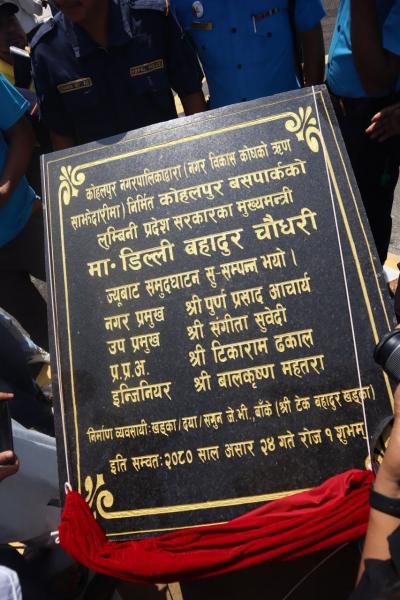 कोहलपुर नगरपालिकाद्वारा (नगर विकास कोषको ऋण
साझेदारीमा) निर्मित कोहलपुर बसपार्कको
लुम्बिनी प्रदेश सरकारका मुख्यमन्त्री
मा. डिल्ली बहादुर चौधरी
ज्यूबाट समुदघाटन सु-सम्पन्न भयो।
नगर प्रमुख श्री पुर्ण प्रसाद आचार्य
उप प्रमुख श्री संगीता सुवेदी
प्र.प्र.अ. श्री टिकाराम ढकाल
इन्जिनियर श्री बालकृष्ण महतरा
निर्माण व्यवसायी: खड्का/दया/सगुन जे.भी., बाँके (श्री टेक बहादुर खड्का)
इति सम्वत: २०८० साल असार २४ गते रोज १ शुभम्